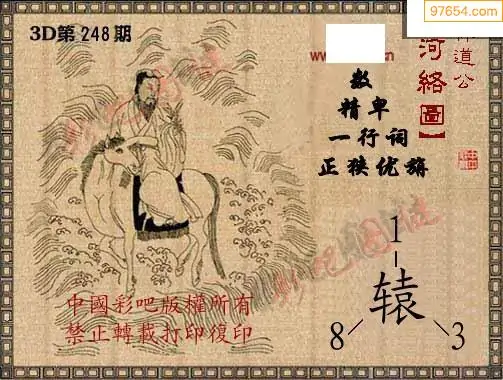 97654.com
3D第248期
www.
道公
河絡圖】
数
精卑
一行词
正狭优旃
1
辕
8 3
中國彩吧版權所有
禁止轉載打印復印